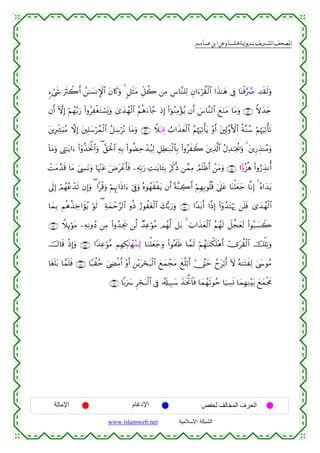 المصحف الشريف برواية هشام عن ابن عامر
وَلَقَد صَّرَّفْنَا فِى هَٰذَا ٱلْقُرْءَانِ لِلنَّاسِ مِن كُلِّ مَثَلٍ وَكَانَ ٱلْإِنسَٰنُ أَكْثَرَ شَىْءٍ
جَدَلًا وَمَا مَنَعَ ٱلنَّاسَ أَن يُؤْمِنُوٓا۟ إِذ جَّآءَهُمُ ٱلْهُدَىٰ وَيَسْتَغْفِرُوا۟ رَبَّهُمْ إِلَّآ أَن
تَأْتِيَهُمْ سُنَّةُ ٱلْأَوَّلِينَ أَوْ يَأْتِيَهُمُ ٱلْعَذَابُ قِبَلًا وَمَا نُرْسِلُ ٱلْمُرْسَلِينَ إِلَّا مُبَشِّرِينَ
وَمُنذِرِينَ وَيُجَٰدِلُ ٱلَّذِينَ كَفَرُوا۟ بِٱلْبَٰطِلِ لِيُدْحِضُوا۟ بِهِ ٱلْحَقَّ وَٱتَّخَذُوٓا۟ ءَايَٰتِى وَمَآ
أُنذِرُوا۟ هُزُؤًا وَمَنْ أَظْلَمُ مِمَّن ذُكِّرَ بِـَٔايَٰتِ رَبِّهِ فَأَعْرَضَ عَنْهَا وَنَسِىَ مَا قَدَّمَتْ
يَدَاهُ إِنَّا جَعَلْنَا عَلَىٰ قُلُوبِهِمْ أَكِنَّةً أَن يَفْقَهُوهُ وَفِىٓ ءَاذَانِهِمْ وَقْرًا وَإِن تَدْعُهُمْ إِلَى
ٱلْهُدَىٰ فَلَن يَهْتَدُوٓا۟ إِذًا أَبَدًا وَرَبُّكَ ٱلْغَفُورُ ذُو ٱلرَّحْمَةِ لَوْ يُؤَاخِذُهُم بِمَا
كَسَبُوا۟ لَعَجَّلَ لَهُمُ ٱلْعَذَابَ بَل لَّهُم مَّوْعِدٌ لَّن يَجِدُوا۟ مِن دُونِهِ مَوْئِلًا
وَتِلْكَ ٱلْقُرَىٰٓ أَهْلَكْنَٰهُمْ لَمَّا ظَلَمُوا۟ وَجَعَلْنَا لِمُهْلَكِهِم مَّوْعِدًا وَإِذْ قَالَ
مُوسَىٰ لِفَتَىٰهُ لَآ أَبْرَحُ حَتَّىٰٓ أَبْلُغَ مَجْمَعَ ٱلْبَحْرَيْنِ أَوْ أَمْضِىَ حُقُبًا فَلَمَّا بَلَغَا
مَجْمَعَ بَيْنِهِمَا نَسِيَا حُوتَهُمَا فَٱتَّخَذَ سَبِيلَهُ فِى ٱلْبَحْرِ سَرَبًا
الحرف المخالف لحفص الإدغام الإمالة
الشبكة الإسلامية www.islamweb.net